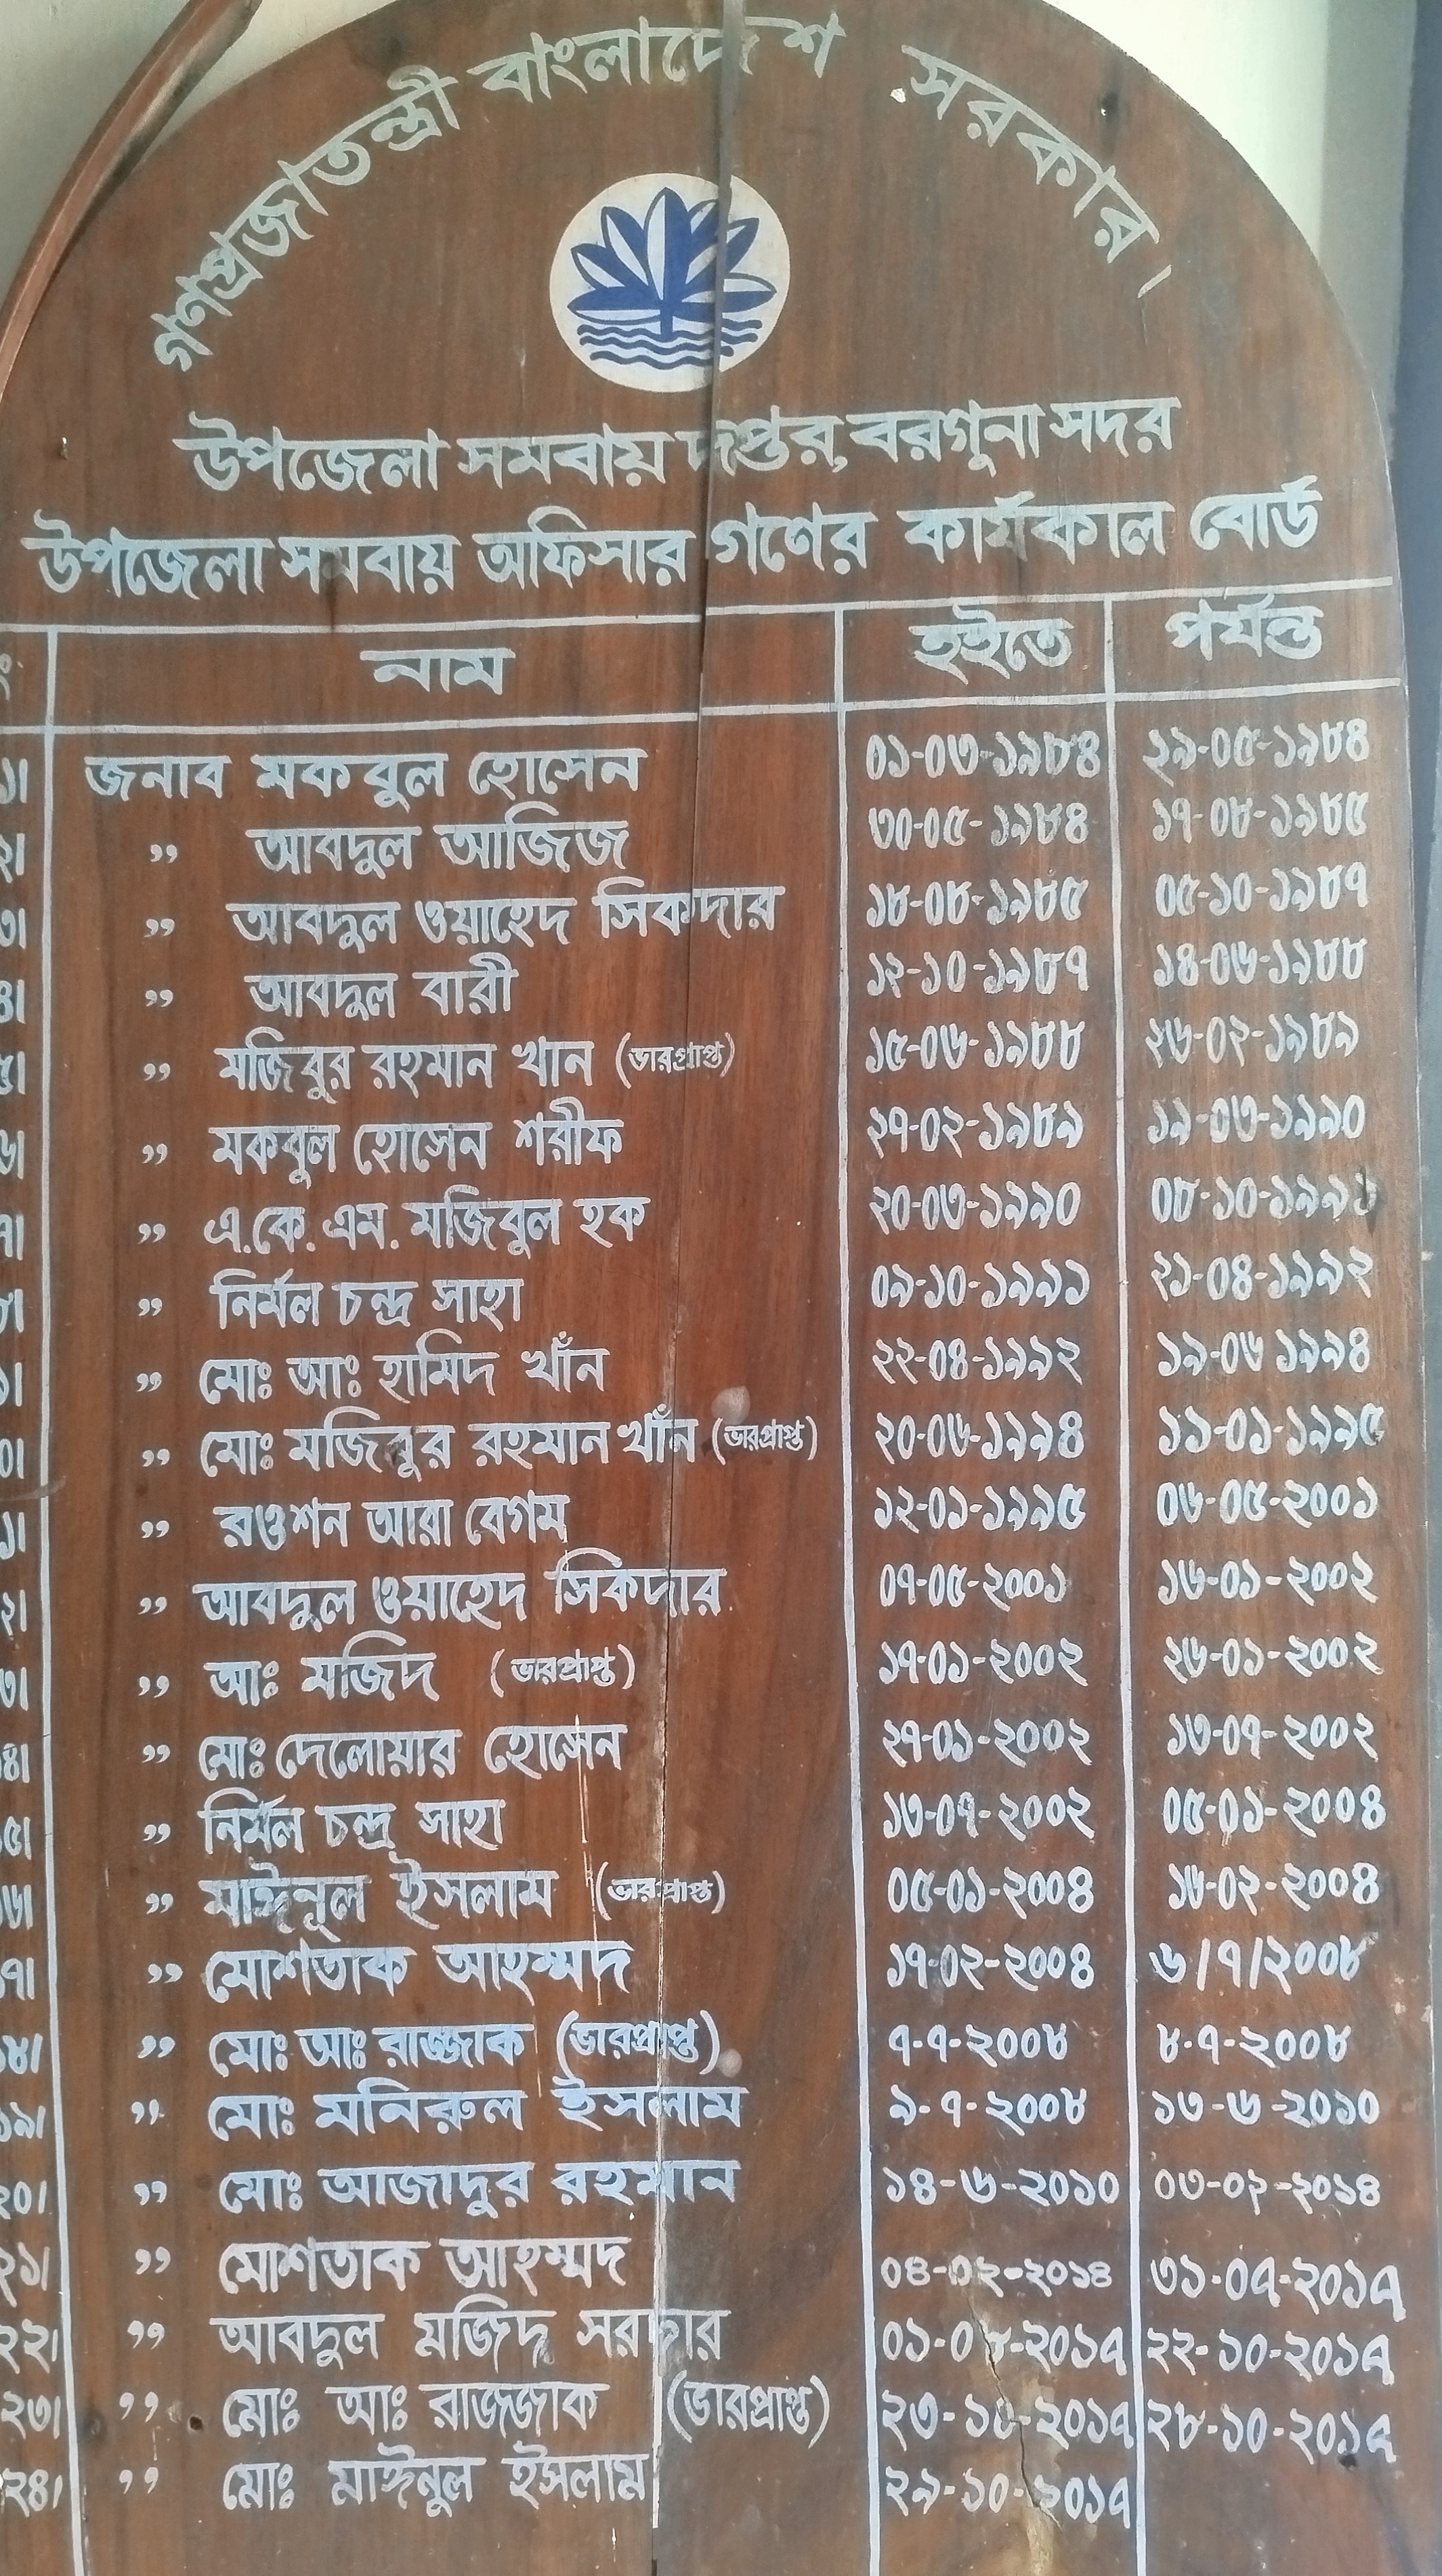 গণপ্রজাতন্ত্রী বাংলাদেশ সরকার।
উপজেলা সমবায় দপ্তর, বরগুনা সদর
উপজেলা সমবায় অফিসার গণের কার্যকাল বোর্ড
নাম হইতে পর্যন্ত
১। জনাব মকবুল হোসেন ০১-০৩-১৯৮৪ ২৯-০৫-১৯৮৪
২। ,, আবদুল আজিজ ৩০-০৫-১৯৮৪ ১৭-০৮-১৯৮৫
৩। ,, আবদুল ওয়াহেদ সিকদার ১৮-০৮-১৯৮৫ ০৫-১০-১৯৮৭
৪। ,, আবদুল বারী ১২-১০-১৯৮৭ ১৪-০৬-১৯৮৮
৫। ,, মজিবুর রহমান খান (ভারপ্রাপ্ত) ১৫-০৬-১৯৮৮ ২৬-০২-১৯৮৯
৬। ,, মকবুল হোসেন শরীফ ২৭-০২-১৯৮৯ ১৯-০৩-১৯৯০
৭। ,, এ.কে. এম. মজিবুল হক ২০-০৩-১৯৯০ ০৮-১০-১৯৯১
৮। ,, নির্মল চন্দ্র সাহা ০৯-১০-১৯৯১ ২১-০৪-১৯৯২
৯। ,, মোঃ আঃ হামিদ খাঁন ২২-০৪-১৯৯২ ১৯-০৬ ১৯৯৪
০। ,, মোঃ মজিবুর রহমান খাঁন (ভারপ্রাপ্ত) ২০-০৬-১৯৯৪ ১১-০১-১৯৯৫
১। ,, রওশন আরা বেগম ১২-০১-১৯৯৫ ০৬-০৫-২০০১
২। ,, আবদুল ওয়াহেদ সিকদার ০৭-০৫-২০০১ ১৬-০১-২০০২
৩। ,, আঃ মজিদ (ভারপ্রাপ্ত) ১৭-০১-২০০২ ২৬-০১-২০০২
৪। ,, মোঃ দেলোয়ার হোসেন ২৭-০১-২০০২ ১৩-০৭-২০০২
৫। ,, নির্মল চন্দ্র সাহা ১৩-০৭-২০০২ ০৫-০১-২০০৪
৬। ,, মাঈনূল ইসলাম (ভারপ্রাপ্ত) ০৫-০১-২০০৪ ১৬-০২-২০০৪
৭। ,, মোশতাক আহম্মদ ১৭-০২-২০০৪ ৬/৭/২০০৮
১৮। ,, মোঃ আঃ রাজ্জাক (ভারপ্রাপ্ত) ৭-৭-২০০৮ ৮-৭-২০০৮
১৯। ,, মোঃ মনিরুল ইসলাম ৯-৭-২০০৮ ১৩-৬-২০১০
২০। ,, মোঃ আজাদুর রহমান ১৪-৬-২০১০ ০৩-০২-২০১৪
২১। ,, মোশতাক আহম্মদ ০৪-০২-২০১৪ ৩১-০৭-২০১৭
২২। ,, আবদুল মজিদ সরদার ০১-০৮-২০১৭ ২২-১০-২০১৭
২৩। ,, মোঃ আঃ রাজজাক (ভারপ্রাপ্ত) ২৩-১০-২০১৭ ২৮-১০-২০১৭
২৪। ,, মোঃ মাঈনুল ইসলাম ২৯-১০-২০১৭